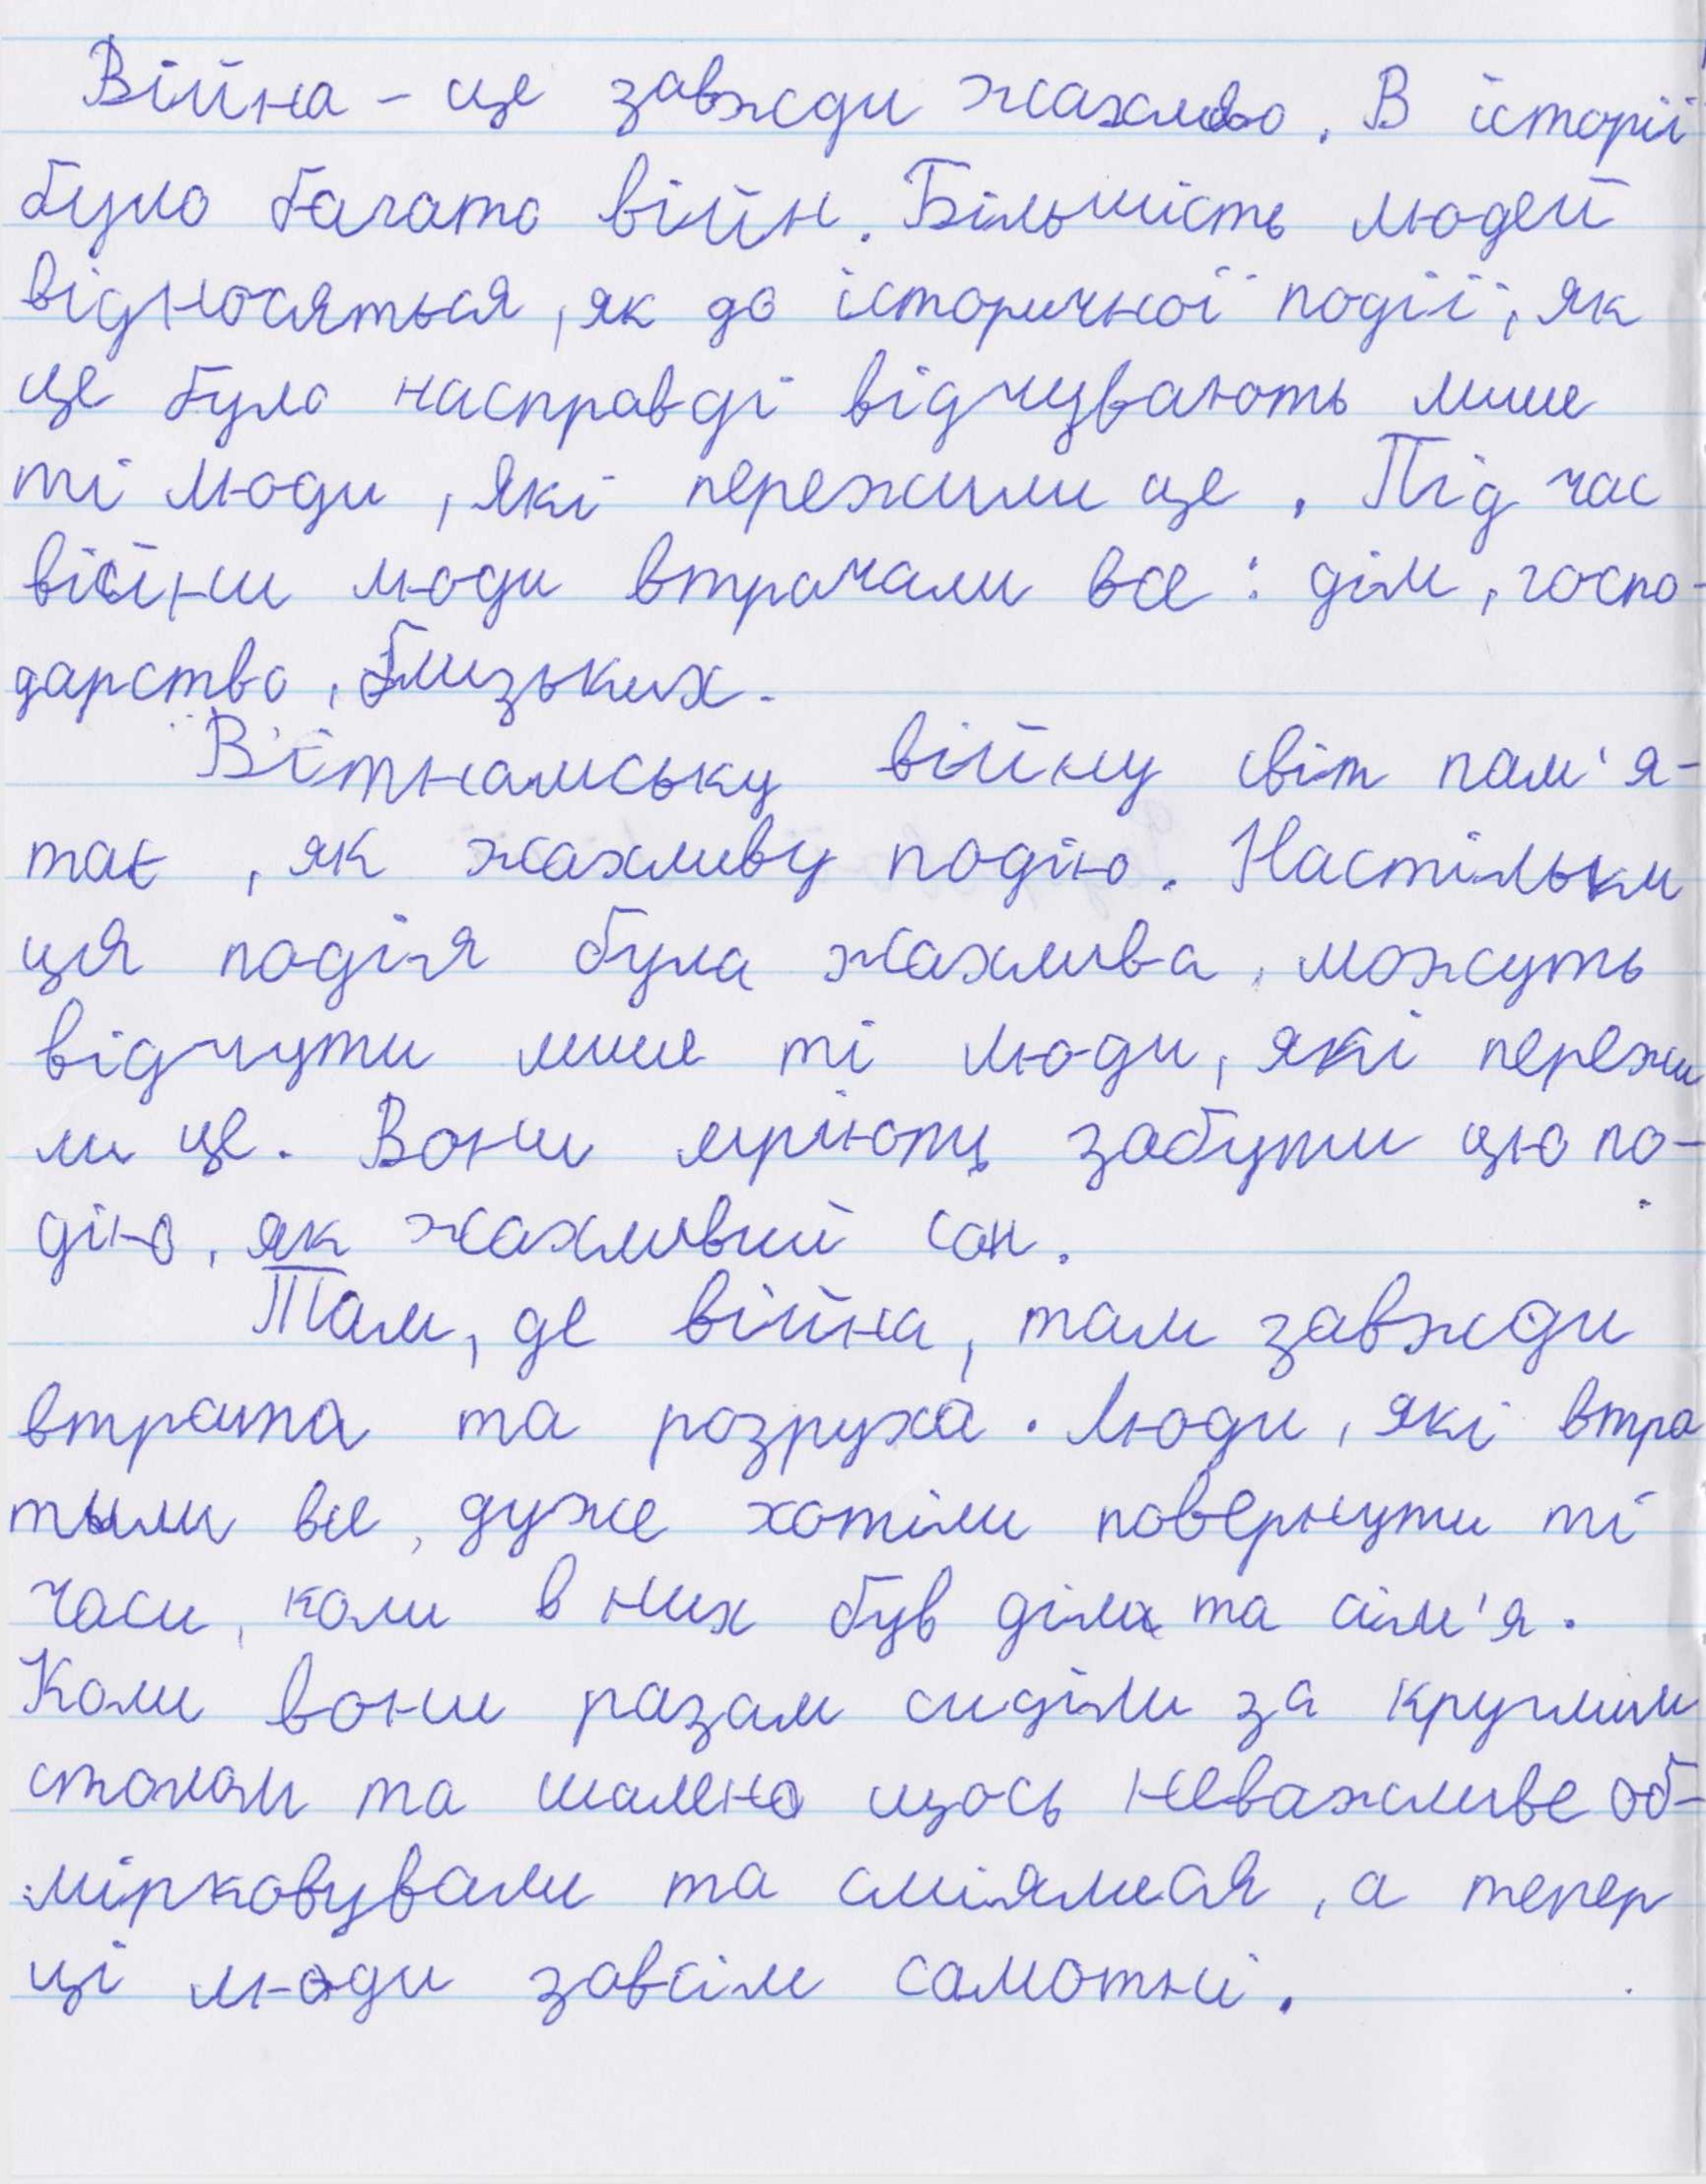 Війна - це завжди жахливо. В історії
було багато війн. Більшість людей
відносяться, як до історичної події, як
це було насправді відчувають лише
ті люди, які пережили це. Під час
війни люди втрачали все: дім, госпо-
дарство, близьких.
В'єтнамську війну світ пам'я-
тає, як жахливу подію. Настільки
ця подія була жахлива, можуть
відчути лише ті люди, які пережи
ли це. Вони мріють забути цю по-
дію, як жахливий сон.
Там, де війна, там завжди
втрата та розруха. Люди, які втра
тили все, дуже хотіли повернути ті
часи, коли в них був дім та сім'я.
Коли вони разом сиділи за круглим
столом та шалено щось неважливе об-
мірковували та сміялися, а тепер
ці люди зовсім самотні.